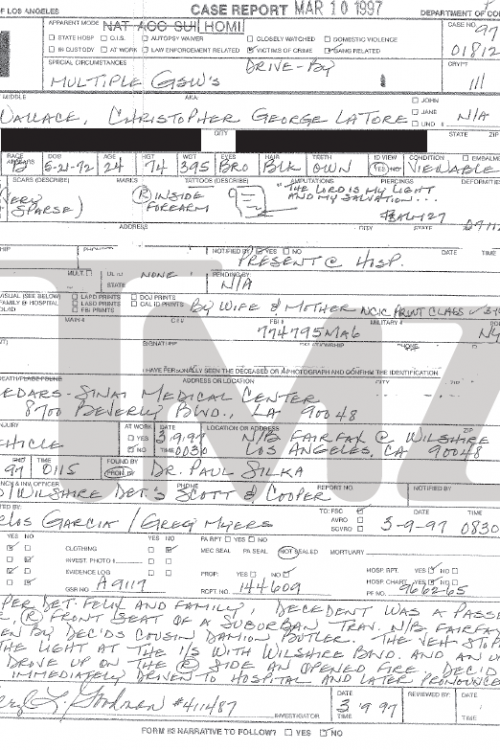 OF LOS ANGELES CASE REPORT MAR 10 1997 DEPARTMENT OF CO
APPARENT MODE NAT ACC SUI HOMI CASE NO. 97
STATE HOSP O.I.S. AUTOPSY WAIVER CLOSELY WATCHED DOMESTIC VIOLENCE 01812
IN CUSTODY AT WORK LAW ENFORCEMENT RELATED VICTIMS OF CRIME GANG RELATED
SPECIAL CIRCUMSTANCES DRIVE-BY CRYPT
MULTIPLE GSW'S 111
MIDDLE AKA JOHN
WALLACE, CHRISTOPHER GEORGE LATORE JANE N/A
UND
CITY STATE ZIP
RACE APPEARS DOB AGE HGT WGT EYES HAIR TEETH ID VIEW CONDITION EMBALM
B 5-21-72 24 74 395 BRO BLK OWN YES NO VIEWABLE
SCARS (DESCRIBE) MARKS TATTOOS (DESCRIBE) AMPUTATIONS PIERCINGS DEFORMITIES
(VERY SPARSE) R INSIDE FOREARM "THE LORD IS MY LIGHT
AND MY SALVATION...
PSALM 27
ADDRESS CITY STATE
NOTIFIED BY YES NO DATE TIME
PRESENT @ HOSP.
MULT. NONE PENDING BY
STATE N/A
VISUAL (SEE BELOW) LAPD PRINTS DOJ PRINTS
FAMILY @ HOSPITAL LASD PRINTS CAL ID PRINTS BY WIFE & MOTHER NCIC PRINT CLASS
FBI PRINTS
MAIN # CII # FBI # MILITARY #
774795MA6 NY
SIGNATURE RELATIONSHIP
I HAVE PERSONALLY SEEN THE DECEASED OR A PHOTOGRAPH AND CONFIRM THE IDENTIFICATION
ADDRESS OR LOCATION CITY ZIP
CEDARS-SINAI MEDICAL CENTER
8700 BEVERLY BLVD., LA 90048
AT WORK DATE LOCATION OR ADDRESS ZIP
VEHICLE YES 3-9-97 N/B FAIRFAX @ WILSHIRE
NO TIME 0030 LOS ANGELES, CA 90048
TIME FOUND BY
97 0115 PRON BY DR. PAUL SILKA
PHONE REPORT NO. NOTIFIED BY
WILSHIRE DET.'S SCOTT & COOPER
TO: FSC DATE TIME
CARLOS GARCIA / GREG MYERS AVRO 3-9-97 0830
SCVRO
YES NO YES NO PA RPT YES NO
CLOTHING MEC SEAL PA SEAL NOT SEALED MORTUARY
INVEST. PHOTO #
EVIDENCE LOG PROP. YES NO HOSP. RPT. YES NO
HOSP. CHART YES NO
GSR NO. A9117 RCPT. NO. 144609 PF NO. 9662-65
PER DET. FELIX AND FAMILY, DECEDENT WAS A PASSE
R FRONT SEAT OF A SUBURBAN TRAV. N/B FAIRFAX
EN BY DEC'DS COUSIN DAMION BUTLER. THE VEH STOP
THE LIGHT AT THE I/S WITH WILSHIRE BLVD. AND AN
DROVE UP ON THE R SIDE AN OPENED FIRE. DEC'D
IMMEDIATELY DRIVEN TO HOSPITAL AND LATER PRONOUNCED
#411487 DATE 3 9 97 REVIEWED BY: DATE
INVESTIGATOR TIME TIME
FORM #3 NARRATIVE TO FOLLOW? YES NO
TMZ